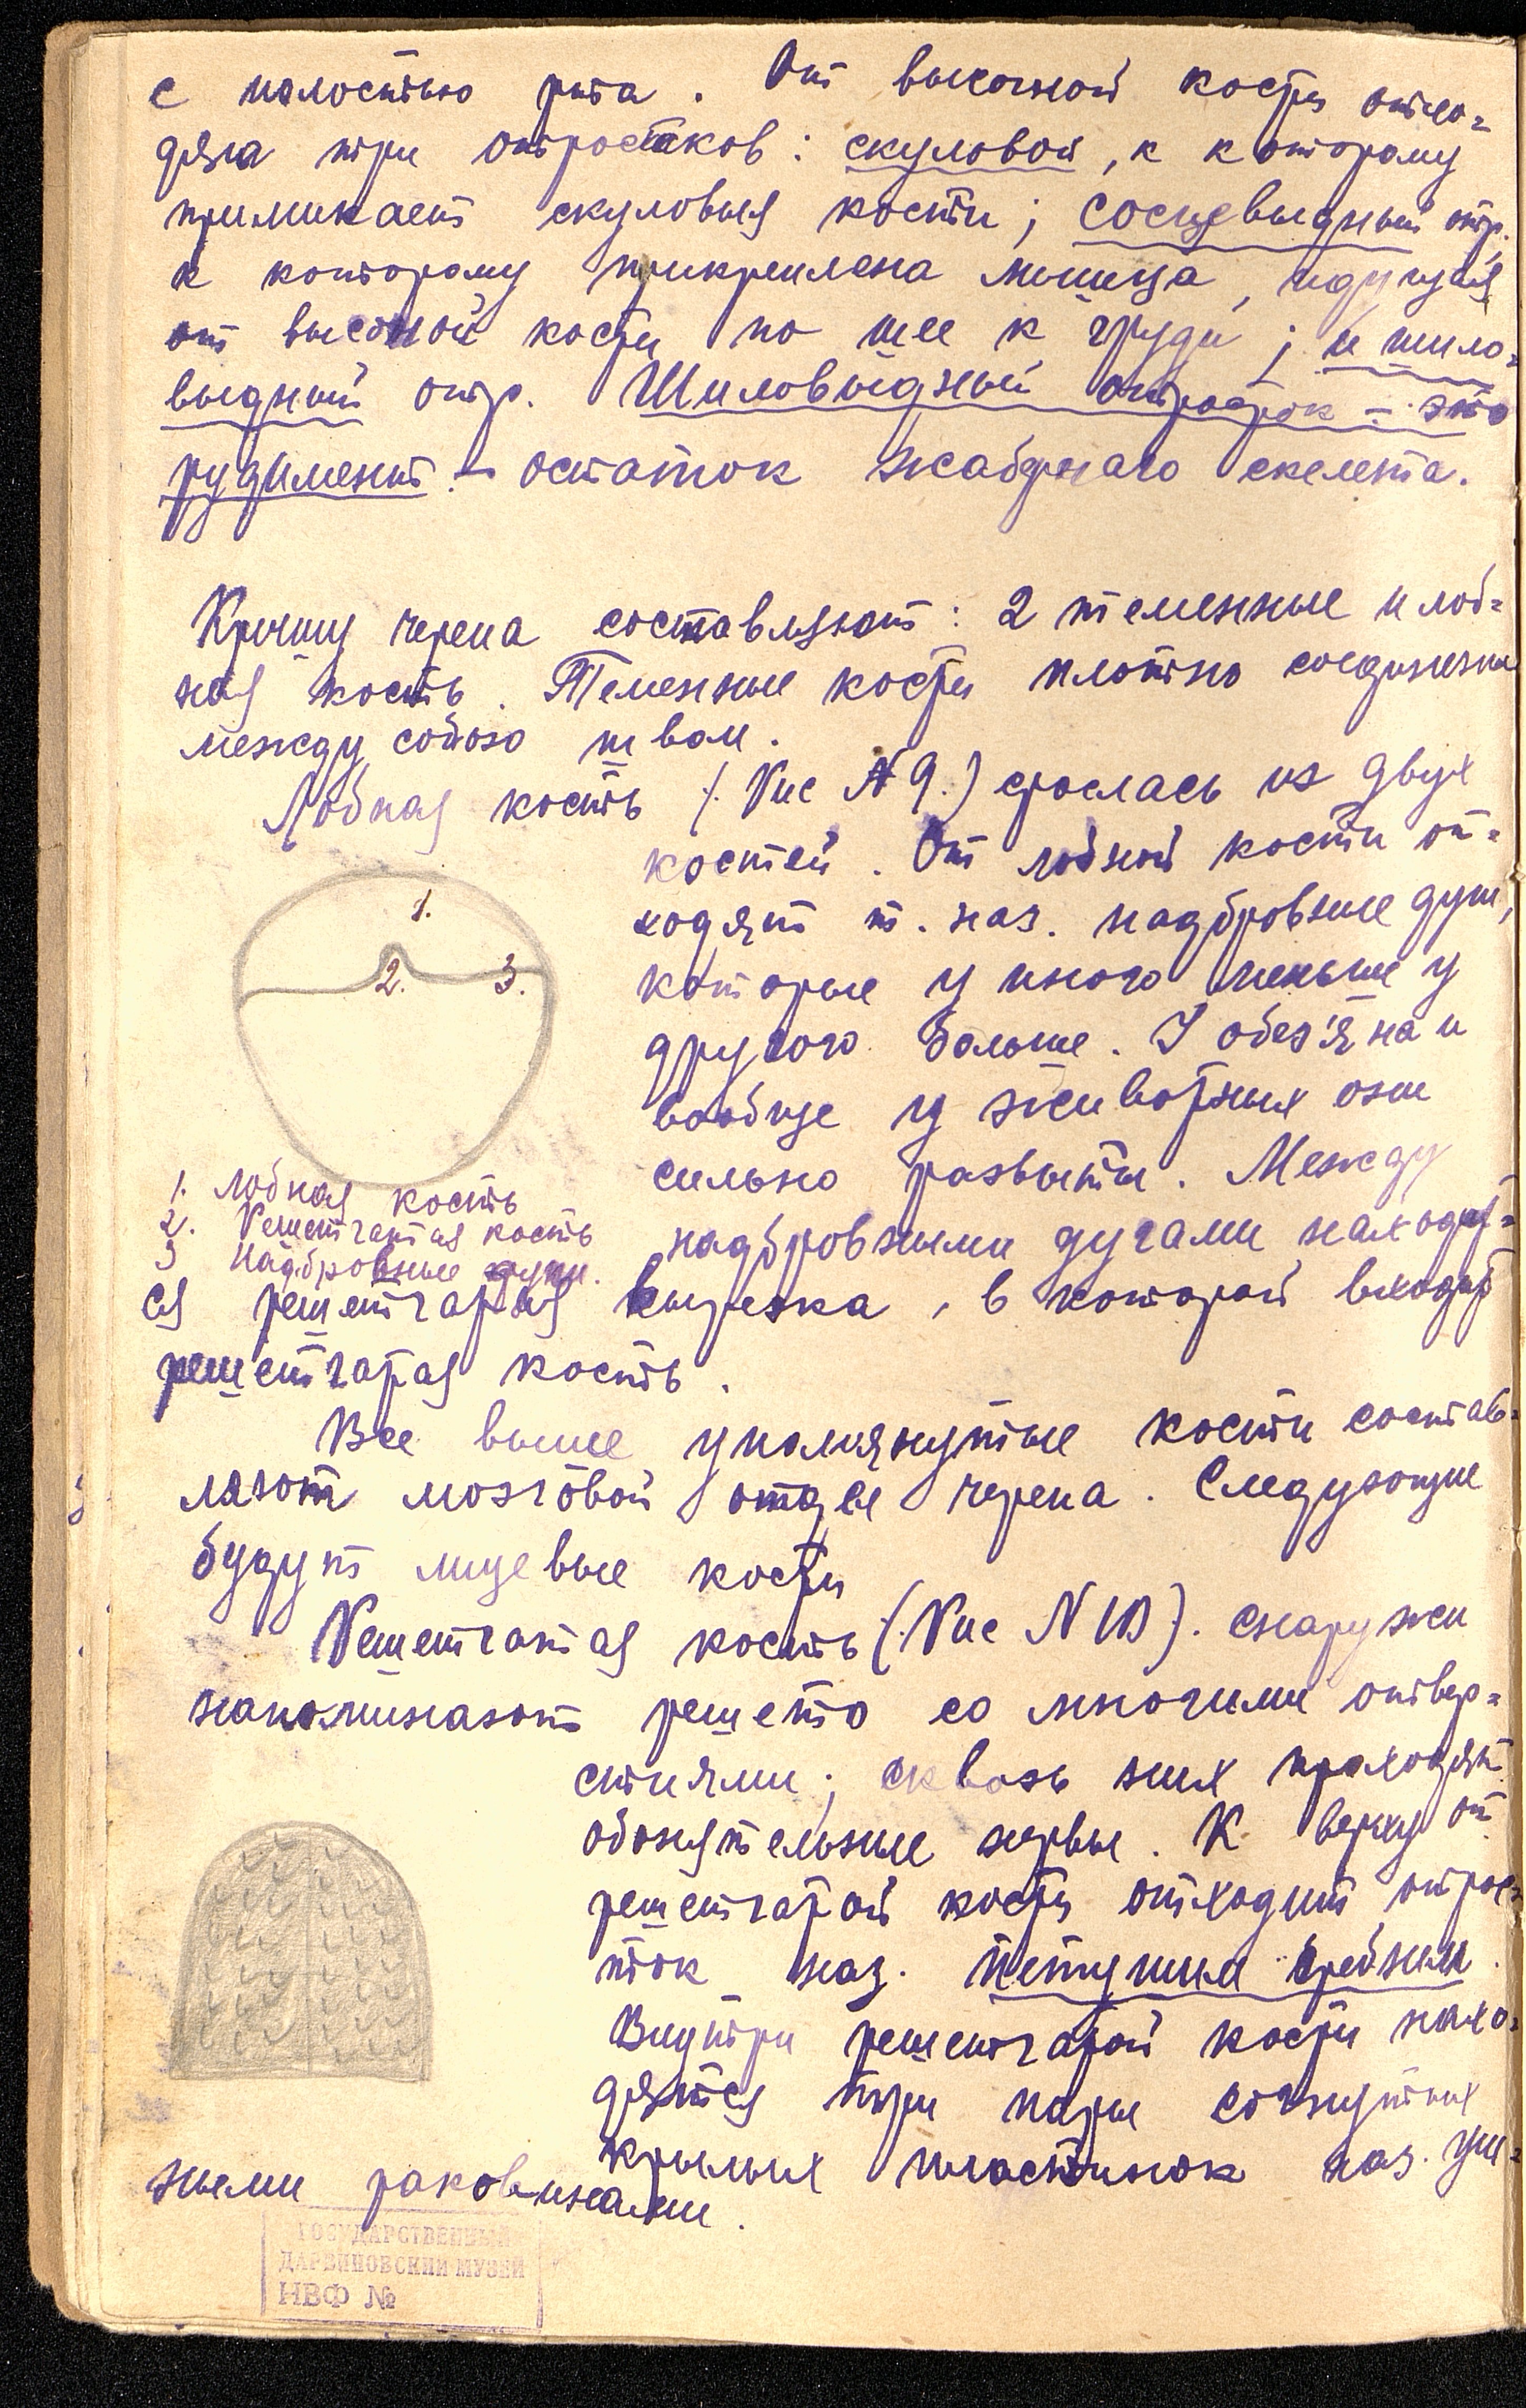 с полостью рта. От височной кости отхо=
дяга три отростаков: скуловой, к которому
примикает скуловыя кости; сосцевыдный отр.
к которому прикреплена мышца, идущая
от высоной кости по шее к груди; и шило=
выдный отр. Шиловыдный отросток - это
рудимент - остаток жаберного скелета.
Крышу черепа составляют: 2 теменные и лоб=
ная кость. Теменные кости плотно соединены
между собою швом.
Лобная кость (Рис N 9.) срослась из двух
костей. От лобной кости от=
ходят т. наз. надбровные дуги,
которые у иного меньше у
другого больше. У обез'яна и
вообще у животных они
сильно развыты. Между
надбровными дугами находит=
ся решетчатая вырезка, в которой входит
решетчатая кость.
1.
2.
3.
1. лобная кость
2. Решетчатая кость
3 Надбровные дуги.
Все выше упомянутые кости состав=
ляют мозговой отдел черепа. Следующие
будут лицевые кости
Решетчатая кость (Рис N 10). снаружи
напоминают решето со многими отвер=
стиями; сквозь них проходят
обонятельные нервы. К верху от
решетчатой кости отходит отрос=
ток наз. петушим гребным.
Внутри решетчатой кости нахо=
дятся три пары согнутых
крылых пластинок наз. уш=
ными раковинами.
ГОСУДАРСТВЕННЫЙ
ДАРВИНОВСКИЙ МУЗЕЙ
НВФ №